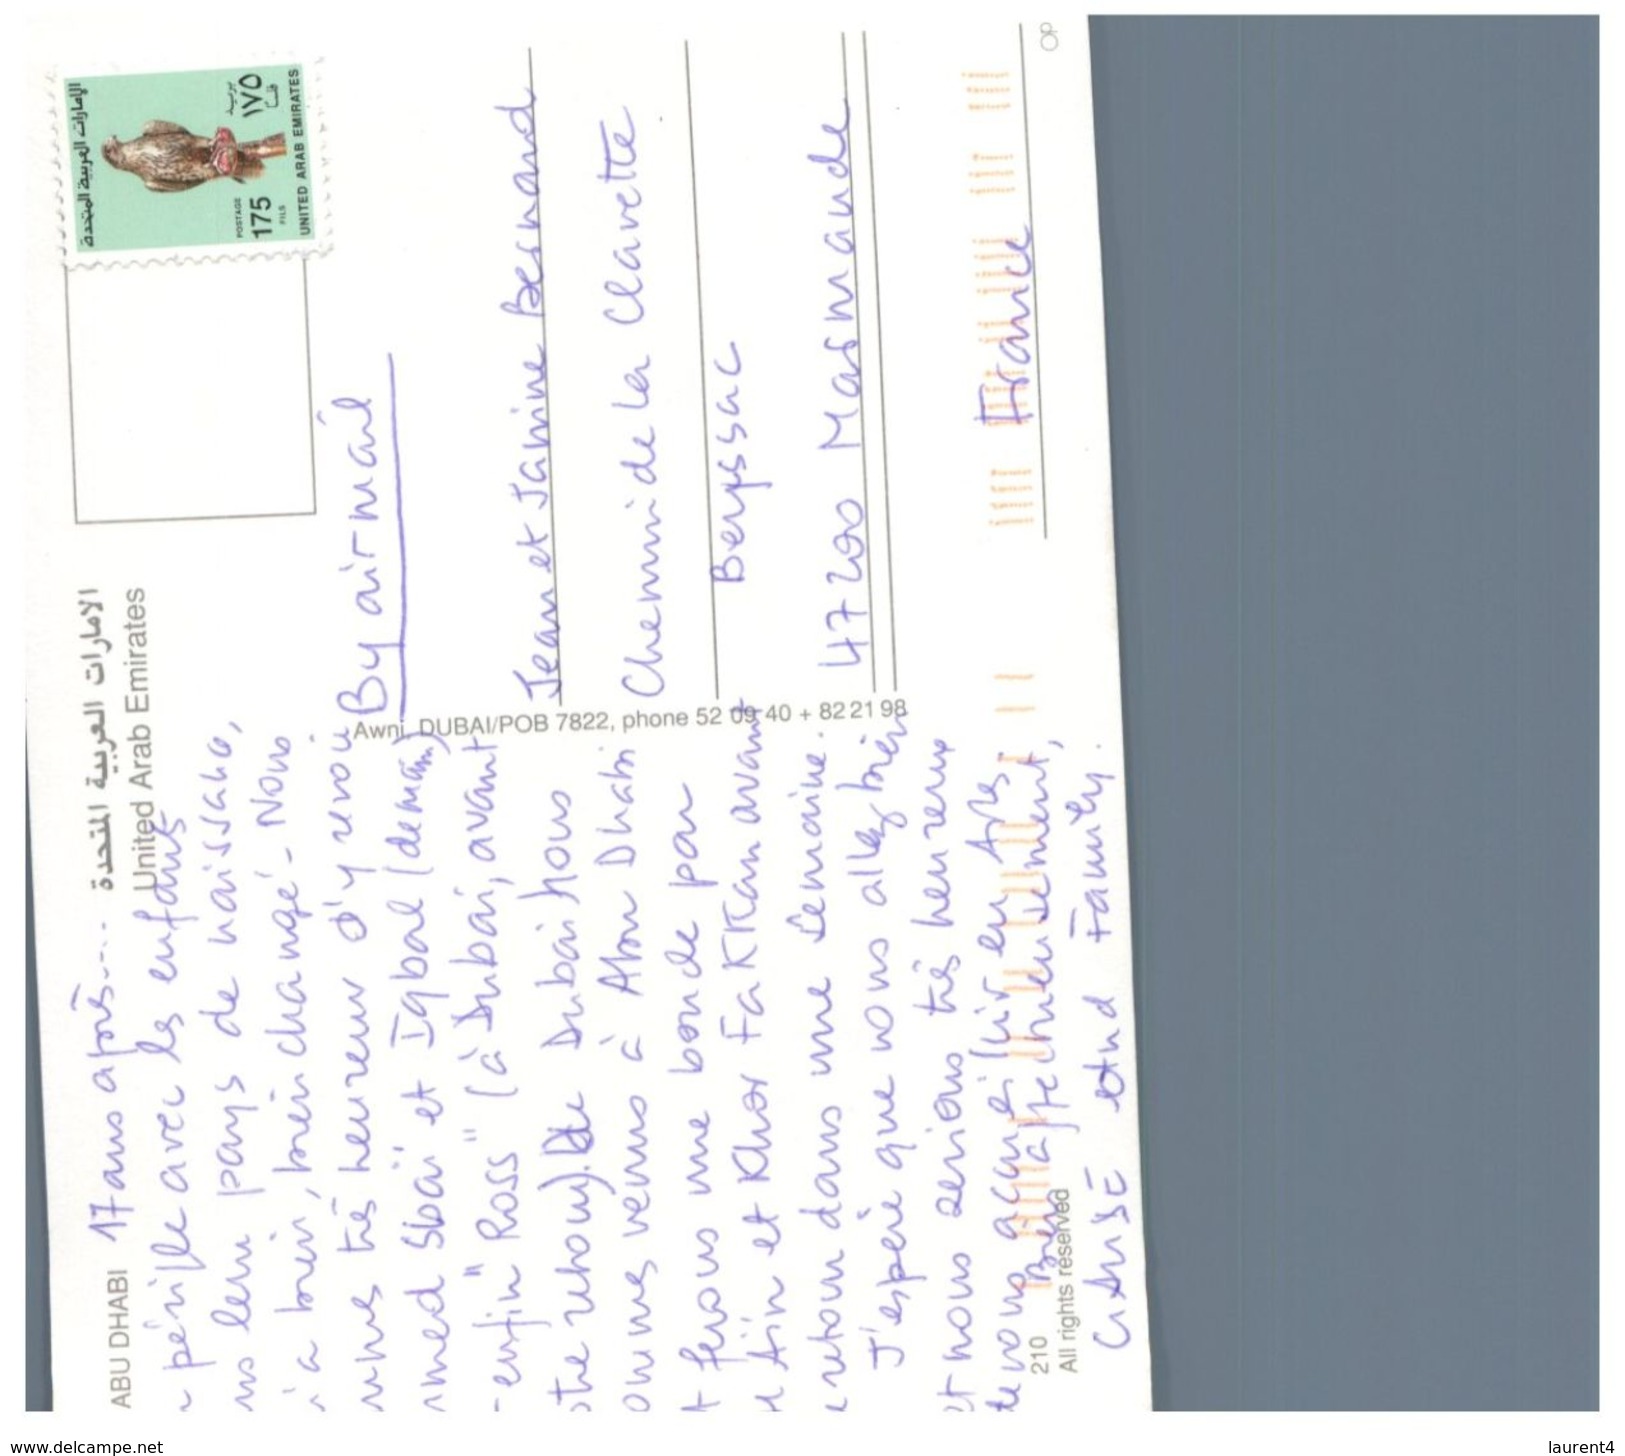 الامارات العربية المتحدة
United Arab Emirates
ABU DHABI
17 ans après....
périple avec les enfants
leur pays de naissance,
a bien, bien changé - Nous
très heureux d'y revoir
Sbaï et Iqbal (demain)
enfin "Ross" (à Dubaï, avant
retour). De Dubaï nous
sommes venus à Abou Dhabi
ferons une boucle par
Aïn et Khor Fakkan avant
retour dans une semaine.
J'espère que vous allez bien
et nous serions très heureux
de vous accueillir en Arles
Bien affectueusement,
and Family.
210
All rights reserved
Awni, DUBAI/POB 7822, phone 52 09 40 + 82 21 98
الإمارات العربية المتحدة
بريد
١٧٥
فلساً
POSTAGE
175
FILS
UNITED ARAB EMIRATES
By air mail
Jean et Janine Besnard
Chemin de la Clavette
Beyssac
47200 Marmande
France
OP
www.delcampe.net
laurent4